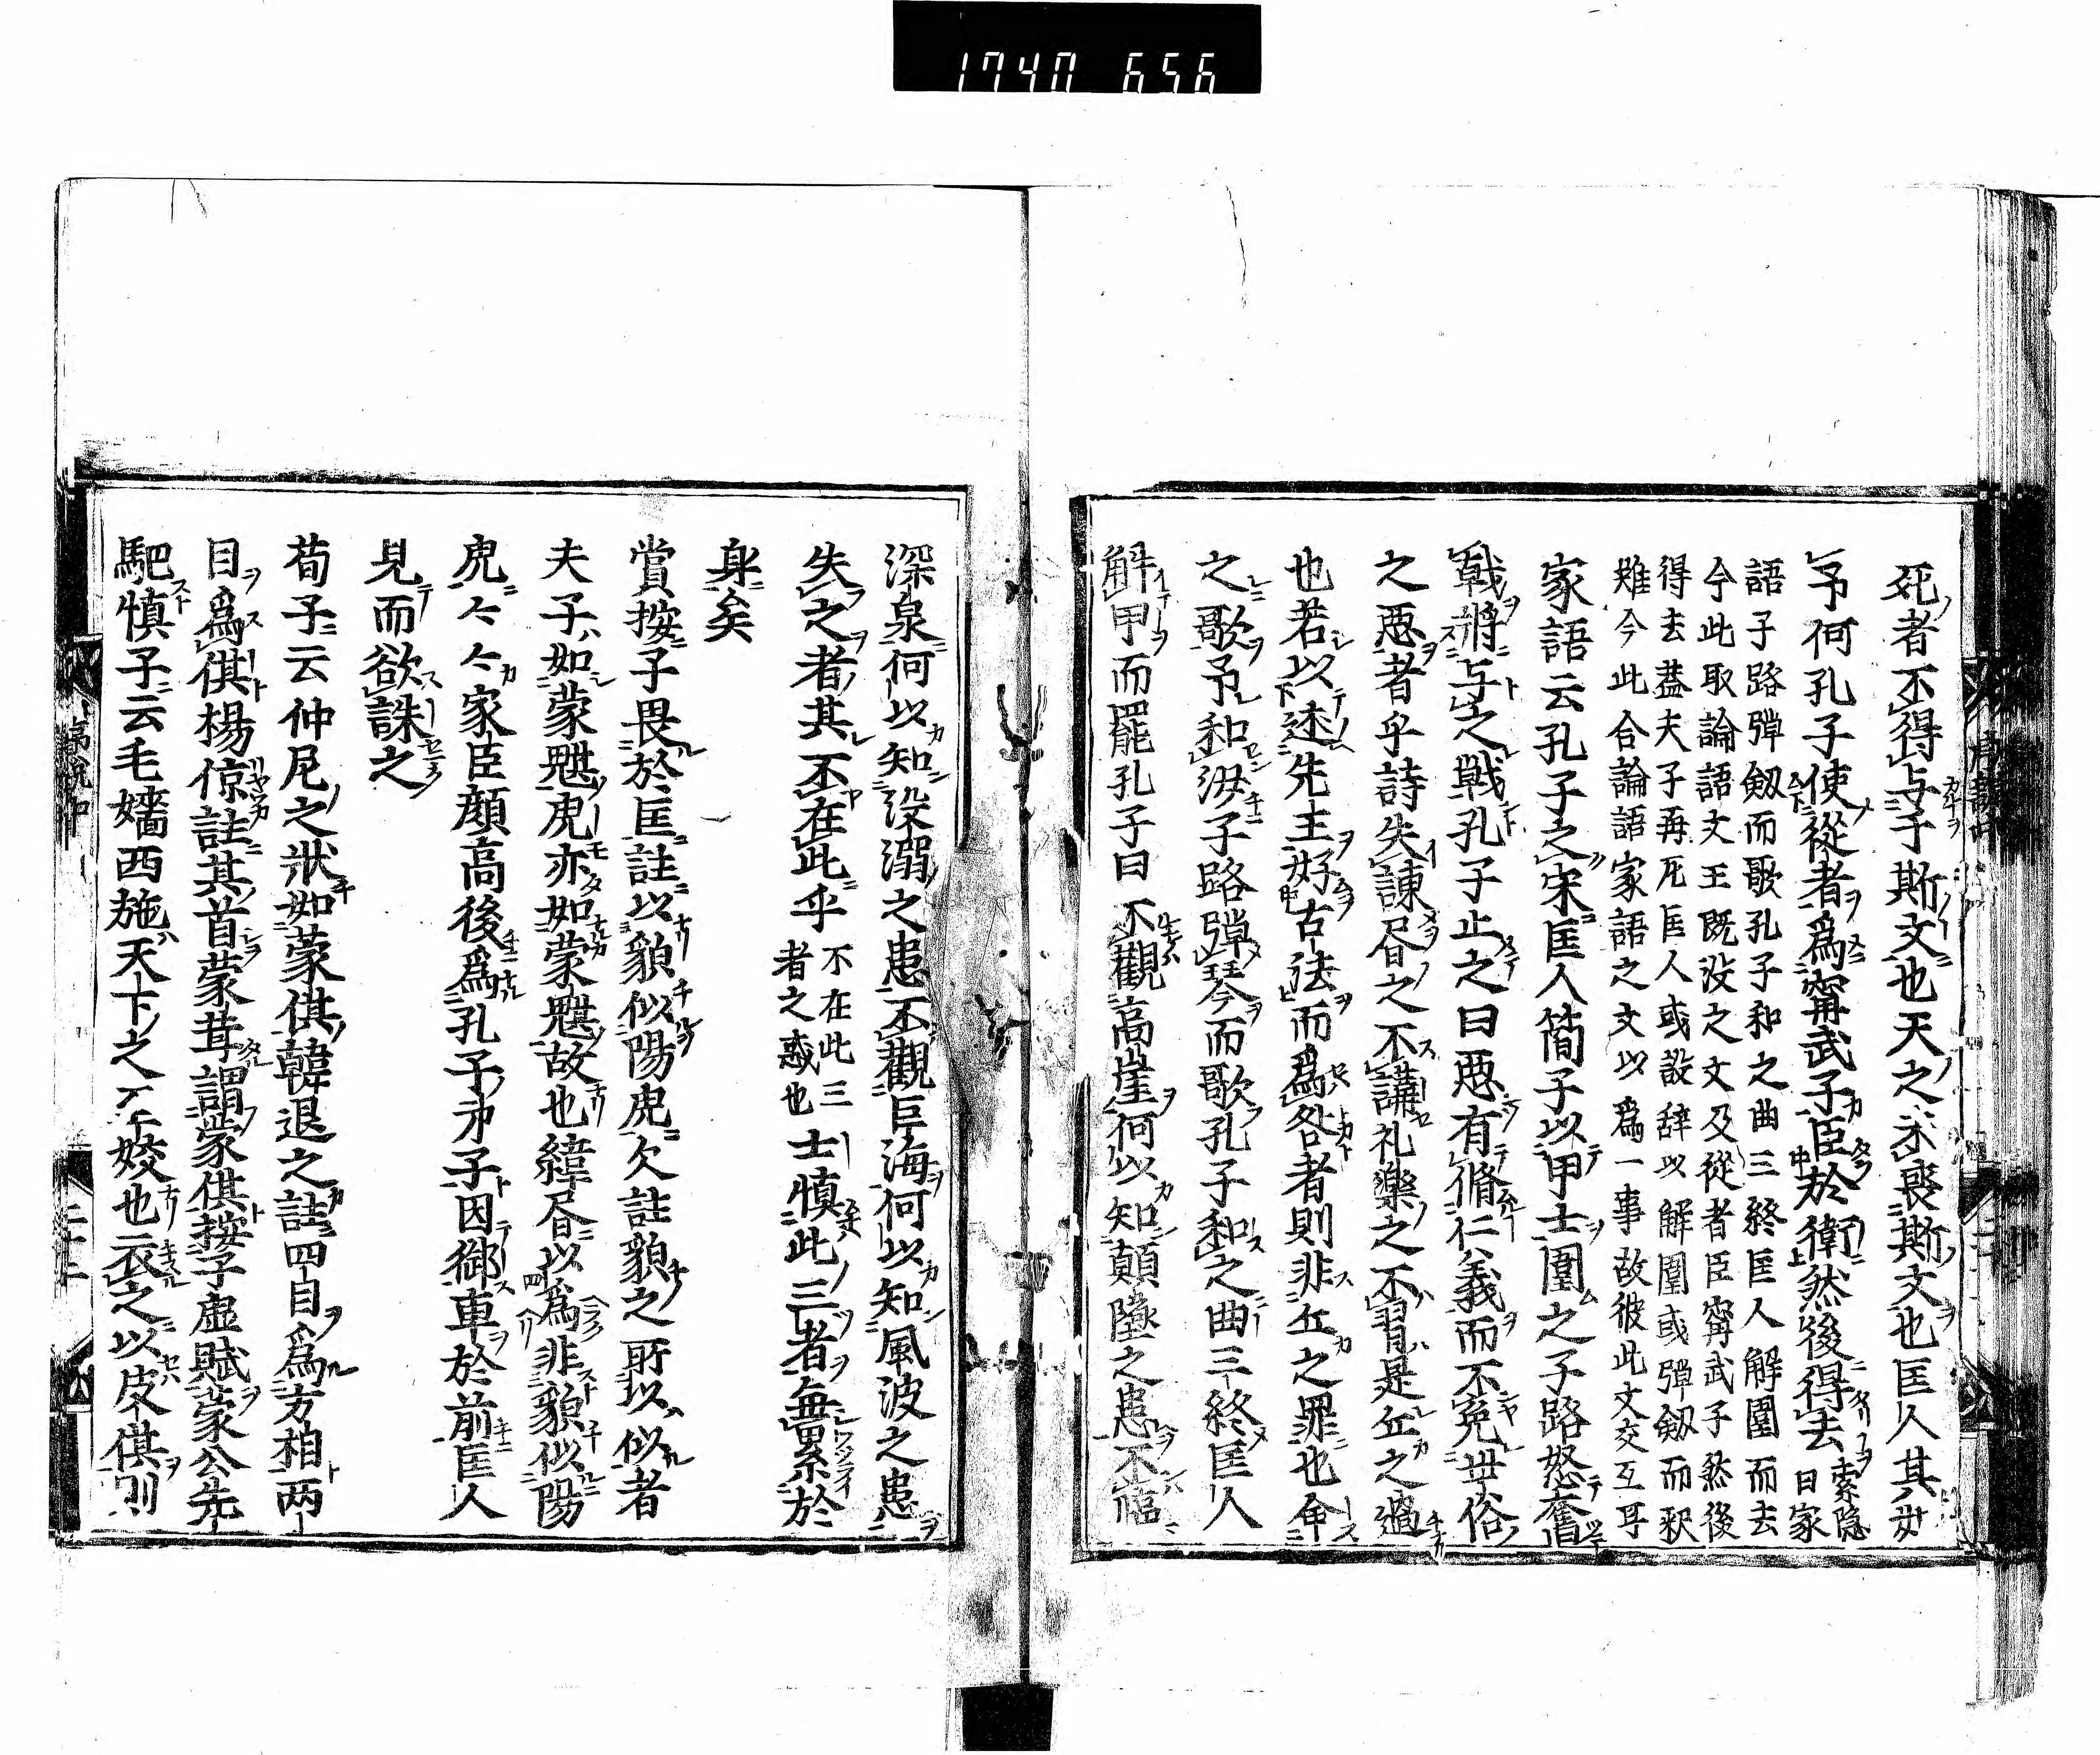 1740 656
死者不得与于斯文也天之未喪斯文也匡人其如
予何孔子使從者爲甯武子臣於衛然後得去
索隠
曰家
語子路彈劔而歌孔子和之曲三終匡人解圍而去
今此取論語文王既没之文及從者臣甯武子然後
得去蓋夫子再厄匡人或設辞以解圍或彈劔而釈
難今此合論語家語之文以爲一事故彼此文交互耳
家語云孔子之宋匡人簡子以甲士圍之子路怒奮
戟將与之戦孔子止之曰悪有脩仁義而不免世俗
之悪者乎詩失諌昏之不講礼楽之不習是丘之過
也若以述先王好古法而爲咎者則非丘之罪也命
之歌予和汝子路彈琴而歌孔子和之曲三終匡人
解甲而罷孔子曰不觀高崖何以知顛墜之患不臨
深泉何以知没溺之患不觀巨海何以知風波之患
失之者其不在此乎
不在此三
者之惑也
士慎此三者無累於
身矣
賞按子畏於匡註以貌似陽虎欠註貌之所以似者
夫子如蒙魌虎亦如蒙魌故也緯昏以爲非貌似陽
虎々々家臣顔高後爲孔子弟子因御車於前匡人
見而欲誅之
荀子云仲尼之状如蒙倛韓退之註四目爲方相両
目爲倛楊倞註其首蒙茸謂蒙倛按子虚賦蒙公先
駆慎子云毛嬙西施天下之至姣也衣之以皮倛則